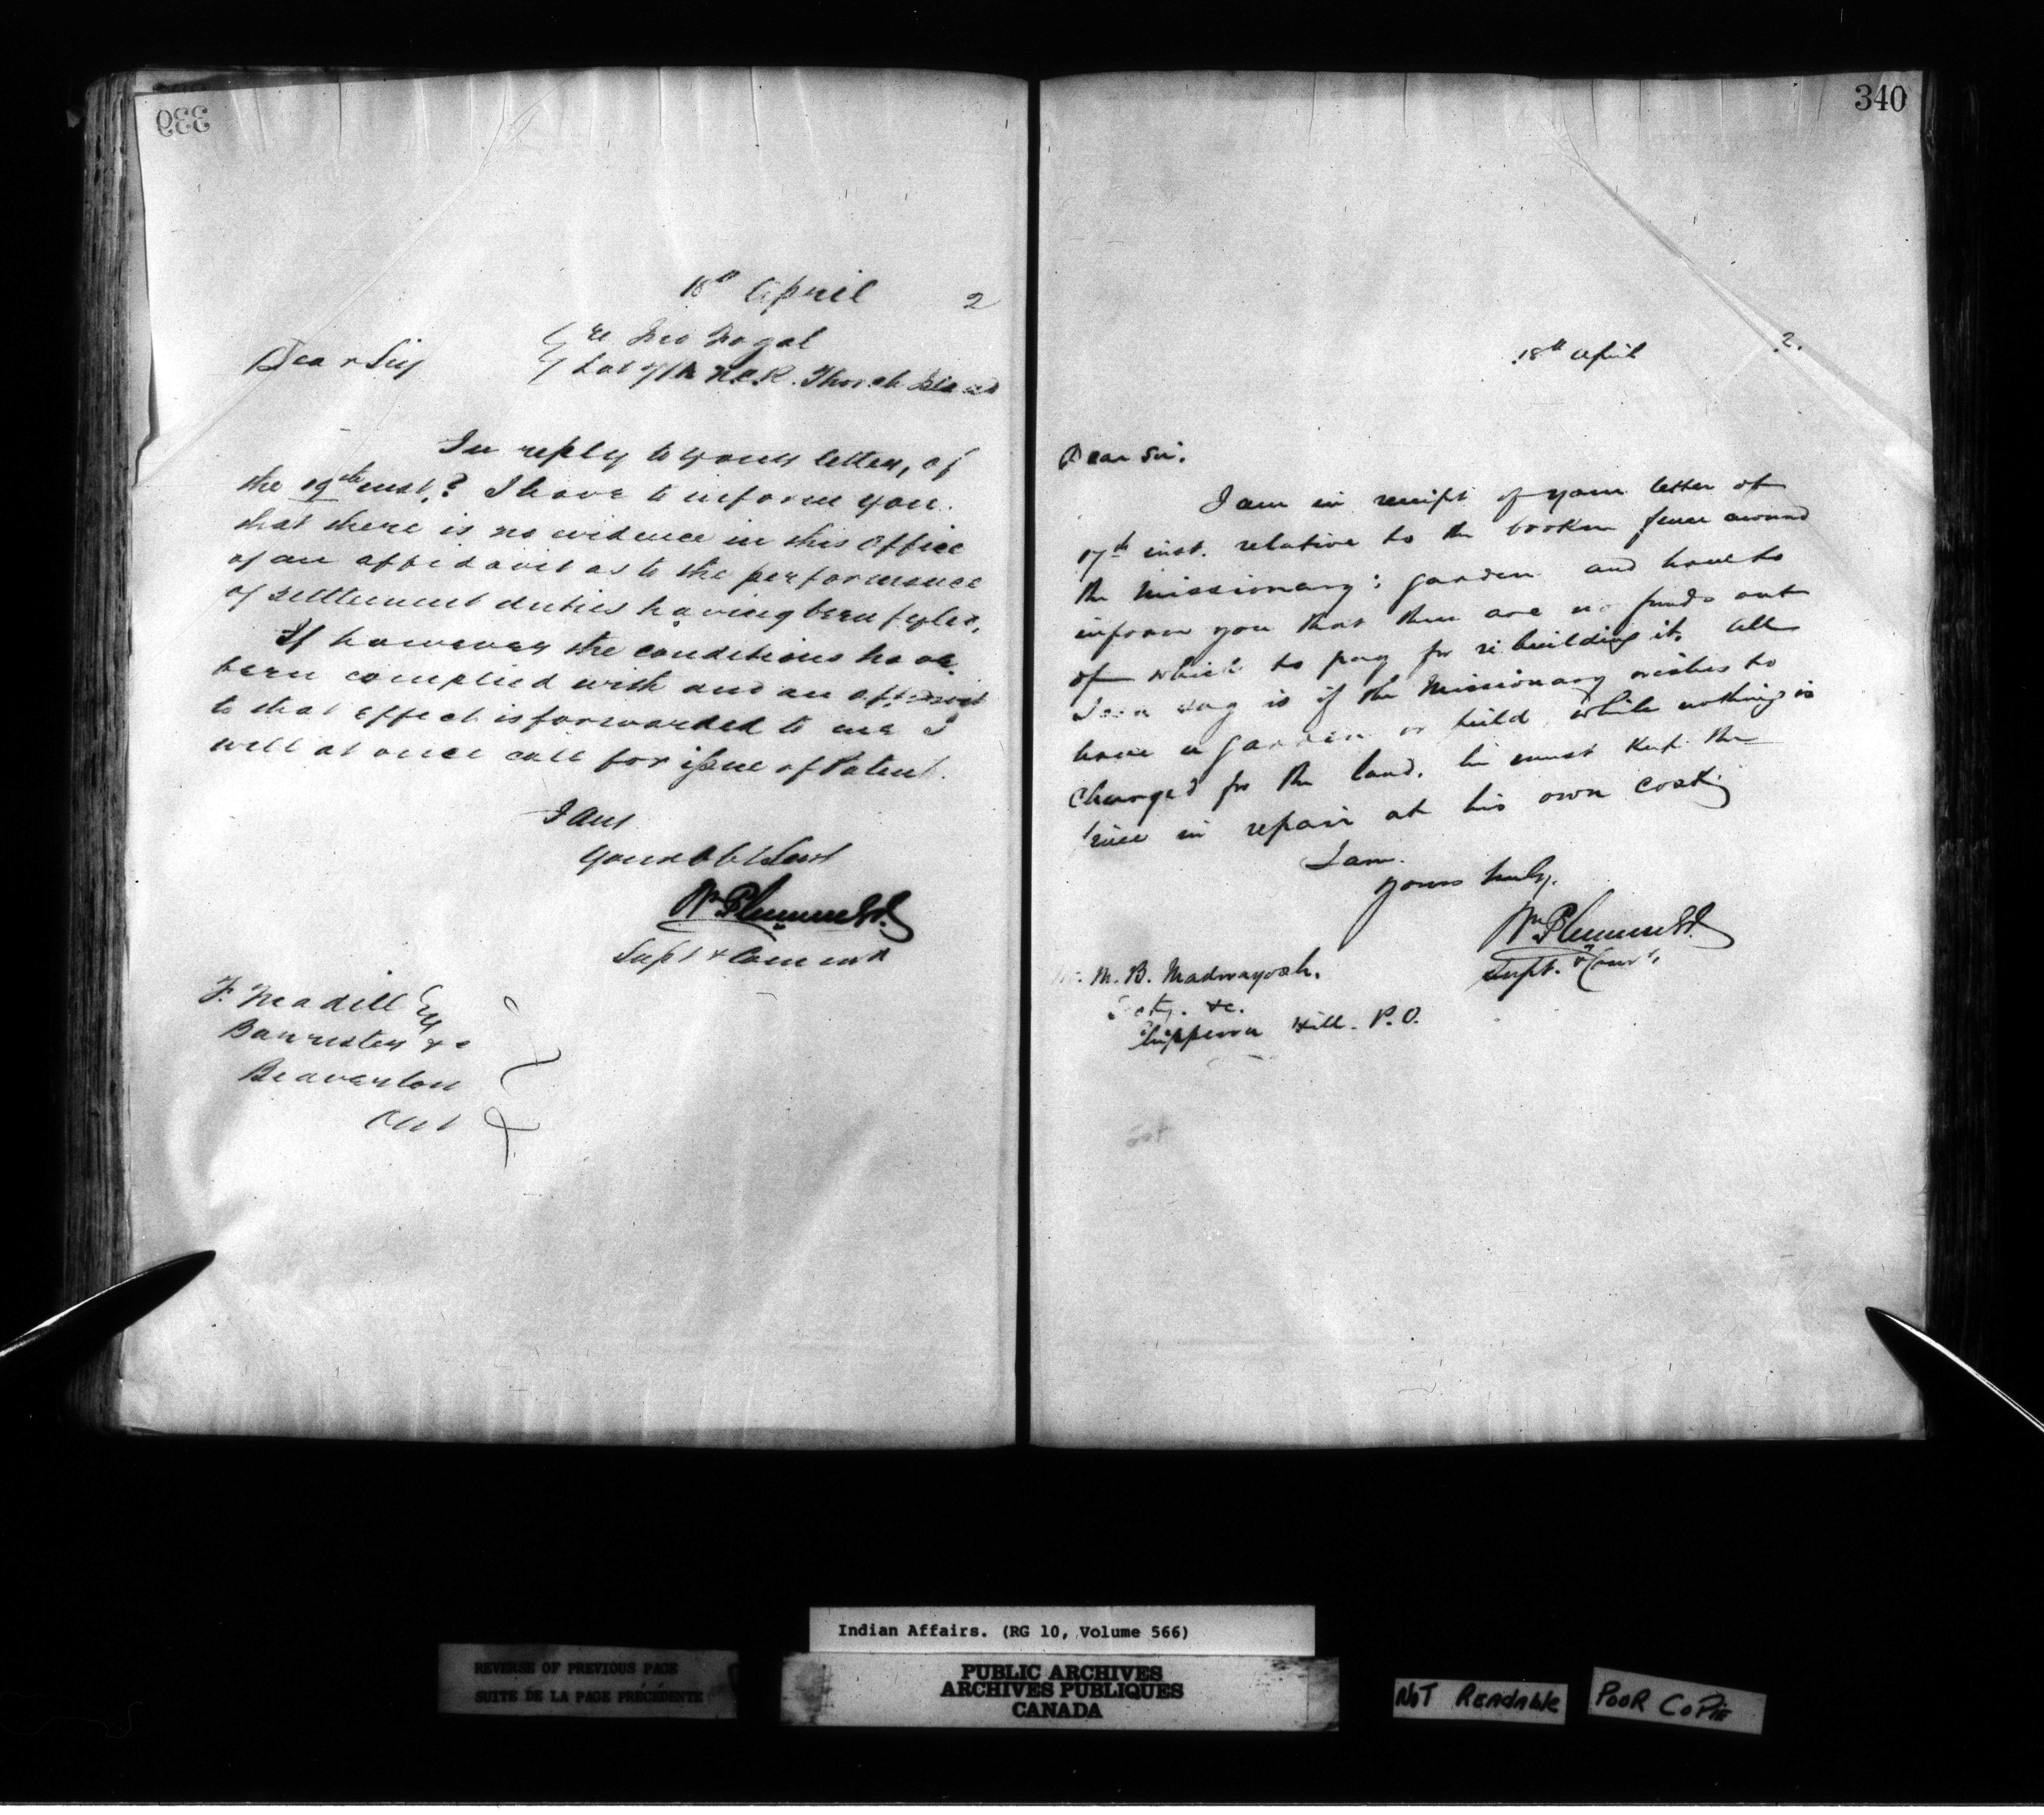 339
18th April 2
Dear Sir
re Geo
Lot N.E.R. Thorah Island
In reply to your letter, of
the 19th inst.? I have to inform you
that there is no evidence in this Office
of an affidavit as to the performance
of settlement duties having been fyled,
If however the conditions have
been complied with and an affidavit
to that effect is forwarded to me I
will at once call for issue of Patent.
I am
Your Obt Servt
Wm Plummer
Supt & Commr
F. Madill Esq
Barrister &c
Beaverton
Ont
340
18th April 2.
Dear Sir.
I am in receipt of your letter of
17th inst. relative to the broken fence around
the Missionary's garden and have to
inform you that there are no funds out
of which to pay for rebuilding it. All
I can say is if the Missionary wishes to
have a garden or build while nothing is
charged for the land, he must keep the
fence in repair at his own cost.
I am.
Yours truly,
Wm Plummer
Supt. & Comr.
Mr. M. B. Madwayosh.
Secty. &c.
Chippewa Hill. P.O.
Indian Affairs. (RG 10, Volume 566)
REVERSE OF PREVIOUS PAGE
SUITE DE LA PAGE PRÉCÉDENTE
PUBLIC ARCHIVES
ARCHIVES PUBLIQUES
CANADA
NOT READABLE
POOR COPIE